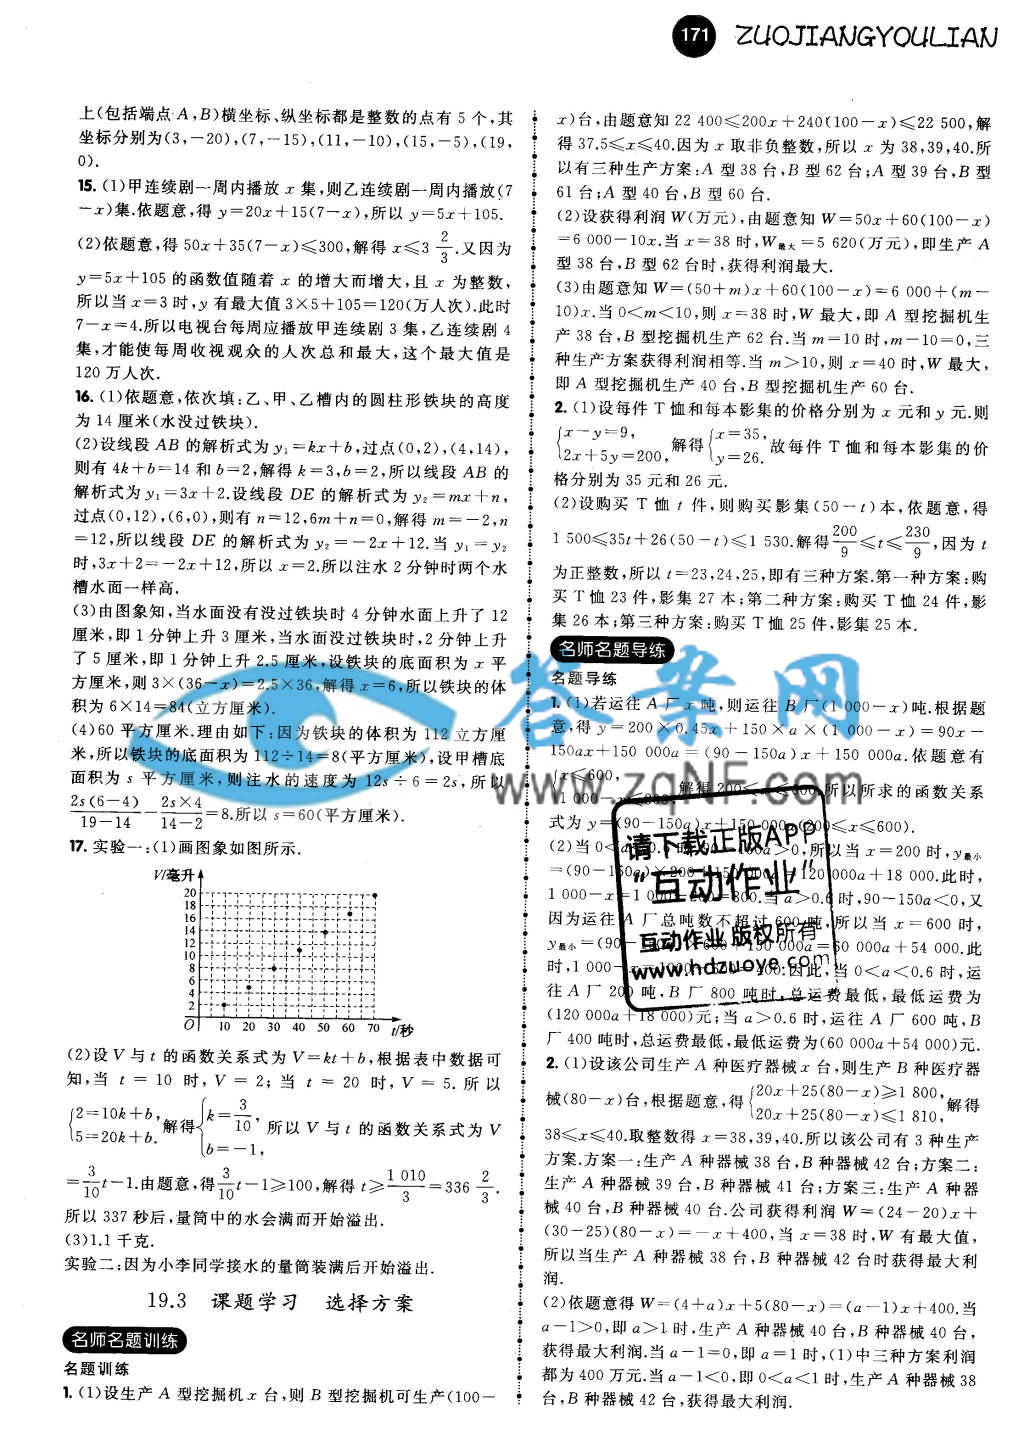 171 ZUOJIANGYOULIAN
上(包括端点 A,B)横坐标、纵坐标都是整数的点有 5 个,其
坐标分别为(3,-20),(7,-15),(11,-10),(15,-5),(19,
0).
15. (1)甲连续剧一周内播放 x 集,则乙连续剧一周内播放(7
-x)集.依题意,得 y=20x+15(7-x),所以 y=5x+105.
(2)依题意,得 50x+35(7-x)≤300,解得 x≤3 2/3.又因为
y=5x+105 的函数值随着 x 的增大而增大,且 x 为整数,
所以当 x=3 时,y 有最大值 3×5+105=120(万人次).此时
7-x=4.所以电视台每周应播放甲连续剧 3 集,乙连续剧 4
集,才能使每周收视观众的人次总和最大,这个最大值是
120 万人次.
16. (1)依题意,依次填:乙、甲、乙槽内的圆柱形铁块的高度
为 14 厘米(水没过铁块).
(2)设线段 AB 的解析式为 y₁=kx+b,过点(0,2),(4,14),
则有 4k+b=14 和 b=2,解得 k=3,b=2,所以线段 AB 的
解析式为 y₁=3x+2.设线段 DE 的解析式为 y₂=mx+n,
过点(0,12),(6,0),则有 n=12,6m+n=0,解得 m=-2,n
=12,所以线段 DE 的解析式为 y₂=-2x+12.当 y₁=y₂
时,3x+2=-2x+12,所以 x=2.所以注水 2 分钟时两个水
槽水面一样高.
(3)由图象知,当水面没有没过铁块时 4 分钟水面上升了 12
厘米,即 1 分钟上升 3 厘米,当水面没过铁块时,2 分钟上升
了 5 厘米,即 1 分钟上升 2.5 厘米,设铁块的底面积为 x 平
方厘米,则 3×(36-x)=2.5×36,解得 x=6,所以铁块的体
积为 6×14=84(立方厘米).
(4)60 平方厘米.理由如下:因为铁块的体积为 112 立方厘
米,所以铁块的底面积为 112÷14=8(平方厘米),设甲槽底
面积为 s 平方厘米,则注水的速度为 12s÷6=2s,所以
2s(6-4)/(19-14) - 2s×4/(14-2) =8.所以 s=60(平方厘米).
17. 实验一:(1)画图象如图所示.
V/毫升
20
18
16
14
12
10
8
6
4
2
O 10 20 30 40 50 60 70 t/秒
(2)设 V 与 t 的函数关系式为 V=kt+b,根据表中数据可
知,当 t = 10 时, V = 2; 当 t = 20 时, V = 5. 所以
{2=10k+b, 5=20k+b. 解得{k=3/10, b=-1, 所以 V 与 t 的函数关系式为 V
=3/10 t-1.由题意,得3/10 t-1≥100,解得 t≥1 010/3=336 2/3.
所以 337 秒后,量筒中的水会满而开始溢出.
(3)1.1 千克.
实验二:因为小李同学接水的量筒装满后开始溢出.
19.3 课题学习 选择方案
名师名题训练
名题训练
1. (1)设生产 A 型挖掘机 x 台,则 B 型挖掘机可生产(100-
x)台,由题意知 22 400≤200x+240(100-x)≤22 500,解
得 37.5≤x≤40.因为 x 取非负整数,所以 x 为 38,39,40.所
以有三种生产方案:A 型 38 台,B 型 62 台;A 型 39 台,B 型
61 台;A 型 40 台,B 型 60 台.
(2)设获得利润 W(万元),由题意知 W=50x+60(100-x)
=6 000-10x.当 x=38 时,W最大=5 620(万元),即生产 A
型 38 台,B 型 62 台时,获得利润最大.
(3)由题意知 W=(50+m)x+60(100-x)=6 000+(m-
10)x.当 0<m<10,则 x=38 时,W 最大,即 A 型挖掘机生
产 38 台,B 型挖掘机生产 62 台.当 m=10 时,m-10=0,三
种生产方案获得利润相等.当 m>10,则 x=40 时,W 最大,
即 A 型挖掘机生产 40 台,B 型挖掘机生产 60 台.
2. (1)设每件 T 恤和每本影集的价格分别为 x 元和 y 元.则
{x-y=9, 2x+5y=200, 解得{x=35, y=26. 故每件 T 恤和每本影集的价
格分别为 35 元和 26 元.
(2)设购买 T 恤 t 件,则购买影集(50-t)本,依题意,得
1 500≤35t+26(50-t)≤1 530.解得200/9≤t≤230/9,因为 t
为正整数,所以 t=23,24,25,即有三种方案.第一种方案:购
买 T 恤 23 件,影集 27 本;第二种方案:购买 T 恤 24 件,影
集 26 本;第三种方案:购买 T 恤 25 件,影集 25 本.
名师名题导练
名题导练
1. (1)若运往 A 厂 x 吨,则运往 B 厂(1 000-x)吨.根据题
意,得 y=200×0.45x+150×a×(1 000-x)=90x-
150ax+150 000a=(90-150a)x+150 000a.依题意有
{x≤600, 1 000-x≤800. 解得 200≤x≤600,所以所求的函数关系
式为 y=(90-150a)x+150 000a(200≤x≤600).
(2)当 0<a<0.6 时,90-150a>0,所以当 x=200 时,y最小
=(90-150a)×200+150 000a=120 000a+18 000.此时,
1 000-x=1 000-200=800.当 a>0.6 时,90-150a<0,又
因为运往 A 厂总吨数不超过 600 吨,所以当 x=600 时,
y最小=(90-150a)×600+150 000a=60 000a+54 000.此
时,1 000-x=1 000-600=400.因此,当 0<a<0.6 时,运
往 A 厂 200 吨,B 厂 800 吨时,总运费最低,最低运费为
(120 000a+18 000)元;当 a>0.6 时,运往 A 厂 600 吨,B
厂 400 吨时,总运费最低,最低运费为(60 000a+54 000)元.
2. (1)设该公司生产 A 种医疗器械 x 台,则生产 B 种医疗器
械(80-x)台,根据题意,得{20x+25(80-x)≥1 800, 20x+25(80-x)≤1 810, 解得
38≤x≤40.取整数得 x=38,39,40.所以该公司有 3 种生产
方案.方案一:生产 A 种器械 38 台,B 种器械 42 台;方案二:
生产 A 种器械 39 台,B 种器械 41 台;方案三:生产 A 种器
械 40 台,B 种器械 40 台.公司获得利润 W=(24-20)x+
(30-25)(80-x)=-x+400,当 x=38 时,W 有最大值,
所以当生产 A 种器械 38 台,B 种器械 42 台时获得最大利
润.
(2)依题意得 W=(4+a)x+5(80-x)=(a-1)x+400.当
a-1>0,即 a>1 时,生产 A 种器械 40 台,B 种器械 40 台,
获得最大利润.当 a-1=0,即 a=1 时,(1)中三种方案利润
都为 400 万元.当 a-1<0,即 0<a<1 时,生产 A 种器械 38
台,B 种器械 42 台,获得最大利润.
答案网
www.zqNF.com
请下载正版APP
“互动作业”
互动作业 版权所有
www.hdzuoye.com